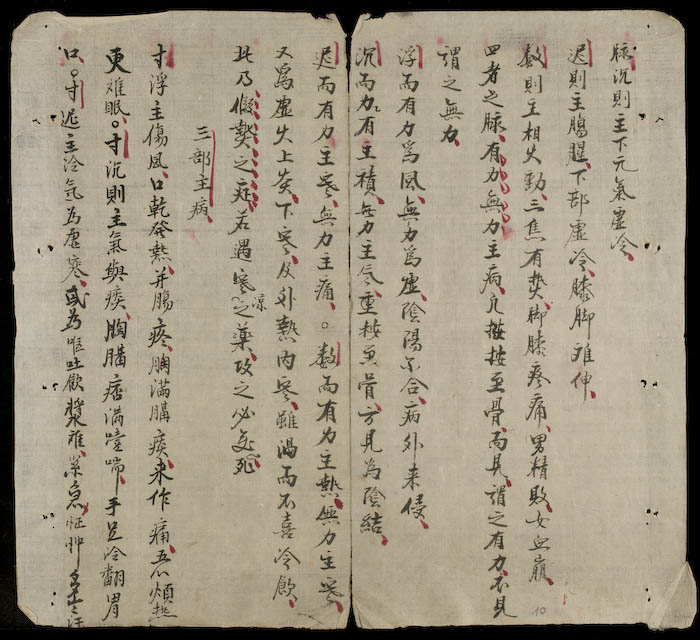 脉沉則主下元氣虛冷
遲則主腸腥下部虛冷膝脚难伸
数則主相火動三焦有热脚膝疼痛男精敗女血崩
四者之脉有力無力主病凡按按至骨而見謂之有力不見
謂之無力
浮而有力為風無力為虛陰陽不合病外来侵
沉而力有主積無力主气重按至骨方見為陰結
迟而有力主寒無力主痛。数而有力主熱無力主寒
又為虛火上炎下寒反外熱内寒雖渴而不喜冷飲
此乃假熱之症若遇寒凉之藥攻之必死
三部主病
寸浮主傷風口乾發熱并腸疼胸滿膈痰来作痛惡煩熱
更难眠。寸沉則主氣與痰胸膈痞滿喘手足冷翻胃
口。寸迟主冷气為虛寒或為嘔吐飲漿难緊急怔忡
10